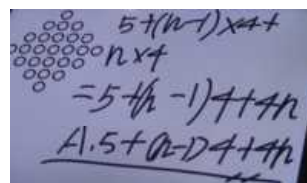 5+(n-1)×4+
n×4
=5+(n-1)4+4n
A.5+(n-1)4+4n